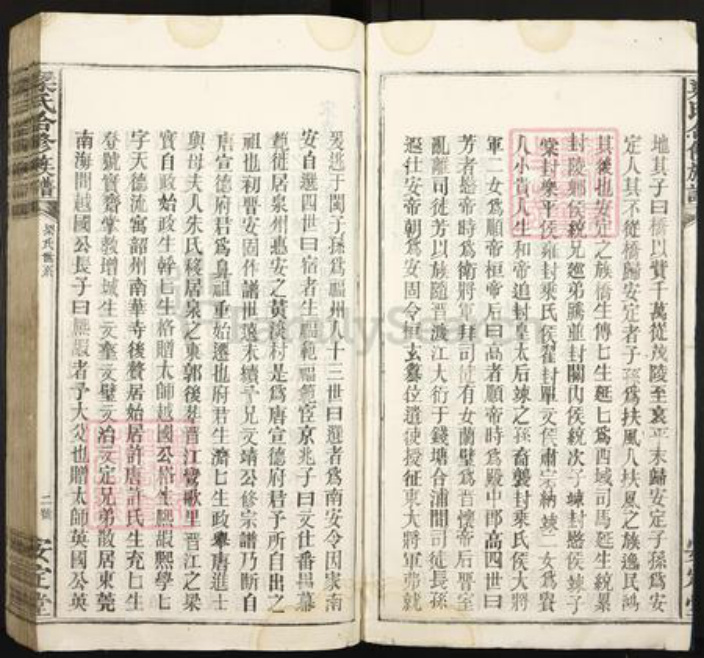 地其子曰橋以貲千萬從茂陵至哀平末歸安定子孫爲安
定人其不從橋歸安定者子孫爲扶風人扶風之族逸民鴻
其後也安定之族橋生傅七生延七爲西域司馬延生統累
封陵鄉侯統兄廵弟騰並封關內侯統次子竦封愍侯竦子
棠封樂平侯雍封乘氏侯翟封單父侯肅宗納竦二女爲貴
人小貴人生和帝追封皇太后竦之孫商襲封乘氏侯大將
軍二女爲順帝桓帝后曰高者順帝時爲殿中郎高四世曰
芳者愍帝時爲衛將軍拜司徒有女蘭璧爲晋懷帝后晋室
亂離司徒芳以族隨晋渡江大衍于錢塘合浦間司徒長孫
遐仕安帝朝爲安固令桓玄簒位遣使授征東大將軍弗就
爰逃于閩子孫爲福州人十三世曰選者爲南安令因家南
安自選四世曰宿者生福範福範宦京兆子曰文仕番禺慕
徙居泉州惠安之黄淡村是爲唐宣德府君予所自出之
祖也初晋安固作譜世遠末續予兄文靖公修宗譜乃斷自
唐宣德府君爲鼻祖重始遷也府君生濟七生政舉唐進士
與母夫人朱氏移居泉之東郭後葬晋江鸞歌里晋江之梁
實自政始政生幹七生格贈太師越國公格生熙嘏熙學七
字天德流寓韶州南華寺後贅居始居許唐許氏生充七生
登號賓齋掌敎增城生文奎文璧文冶文定兄弟散居東莞
南海間越國公長子曰熙嘏者予大父也贈太師英國公英
梁氏合修族譜
梁氏世系
二號
安定堂